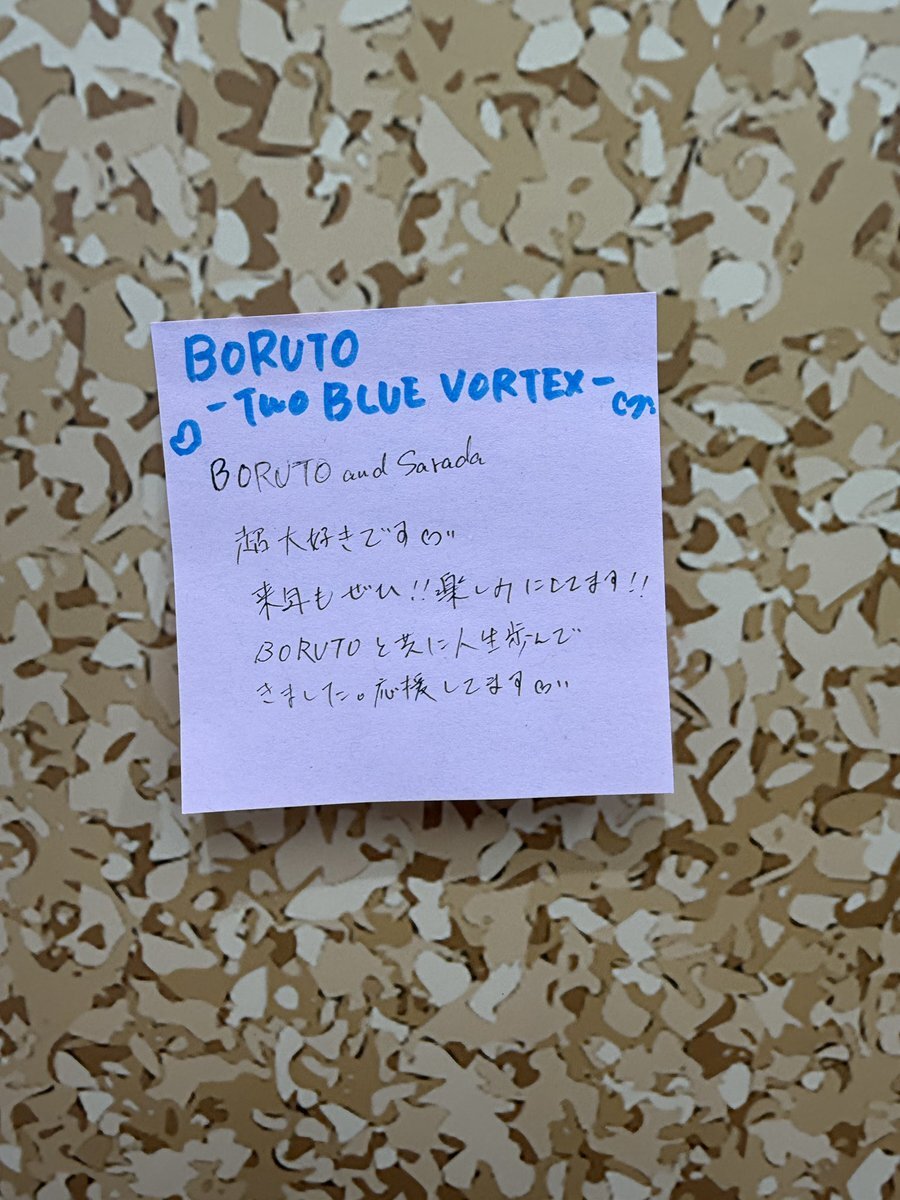 BORUTO
-TWO BLUE VORTEX-
BORUTO and Sarada
超大好きです
来年もぜひ!!楽しみにしてます!!
BORUTOと共に人生歩んで
きました。応援してます